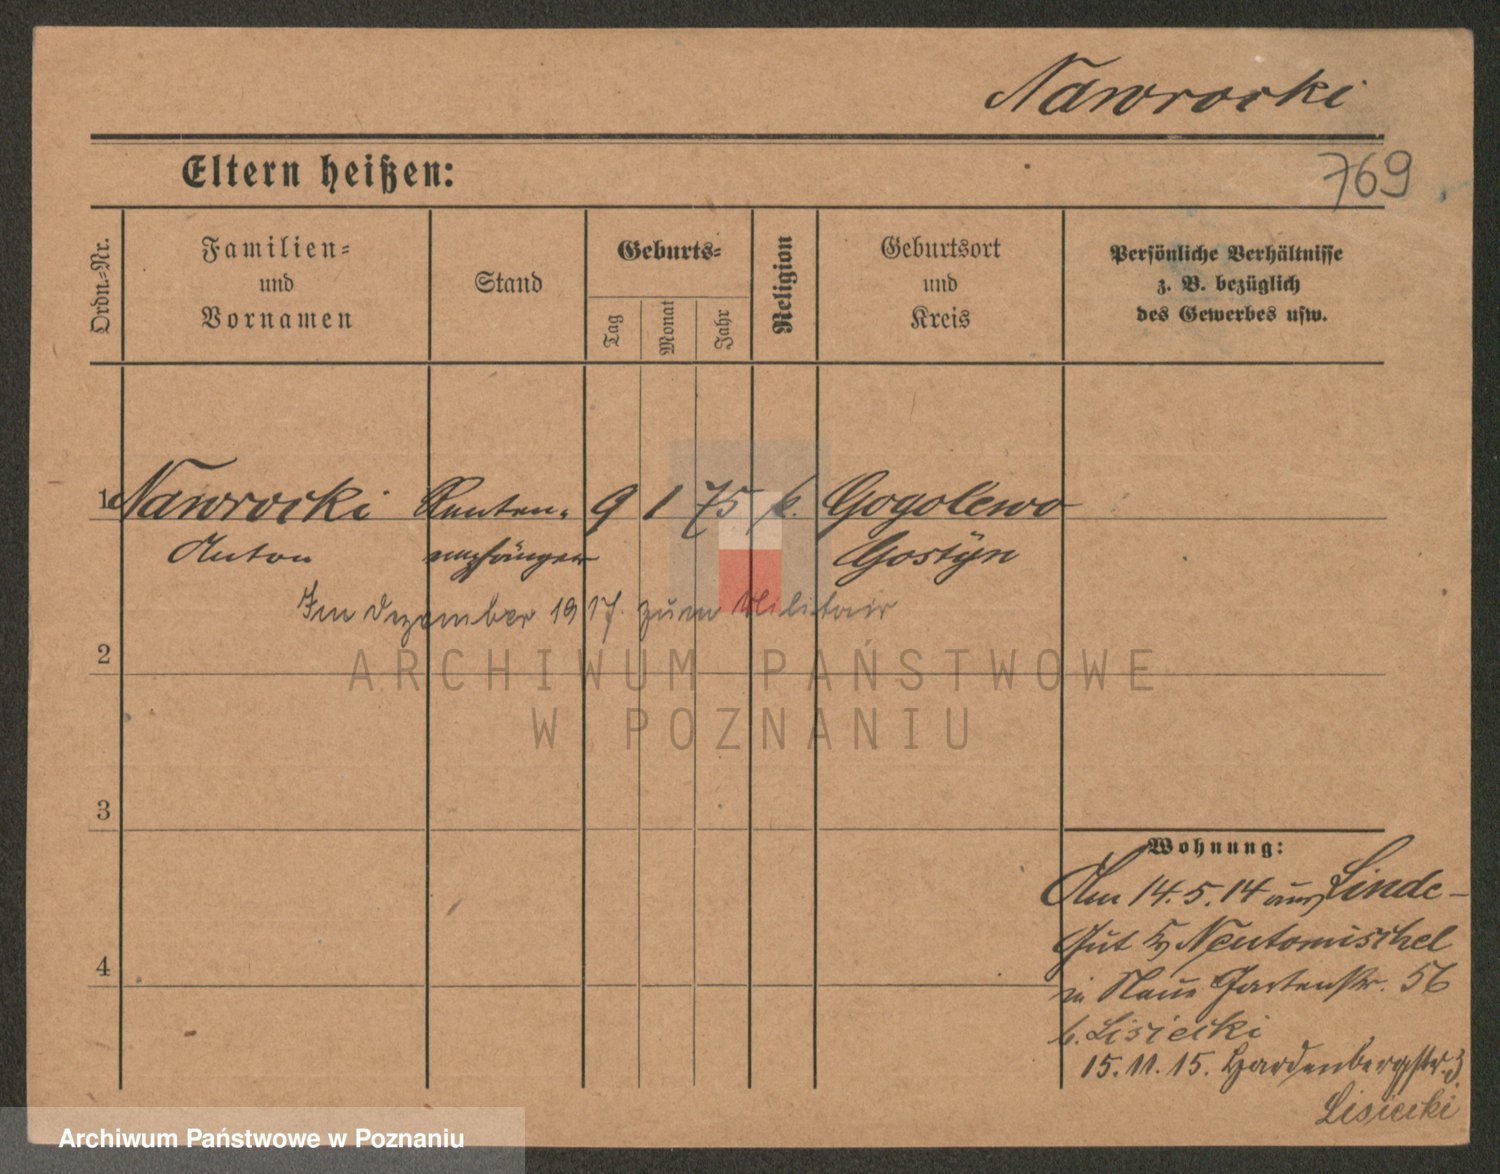 Nawrocki
Eltern heißen:
769
Ordn.-Nr.
Familien-
und
Vornamen
Stand
Geburts-
Tag
Monat
Jahr
Religion
Geburtsort
und
Kreis
Persönliche Verhältnisse
z. B. bezüglich
des Gewerbes usw.
1 Nawrocki Renten- 9 1 75 k. Gogolewo
Anton empfänger Gostyn
Im Dezember 1917. zum Militair
2
ARCHIWUM PAŃSTWOWE
W POZNANIU
3
Wohnung:
Am 14.5.14 aus Linde-
4
Gut Neutomischel
in Neue Gartenstr. 56
b. Lisiecki
15.11.15. Hardenbergstr. 3
Lisiecki
Archiwum Państwowe w Poznaniu